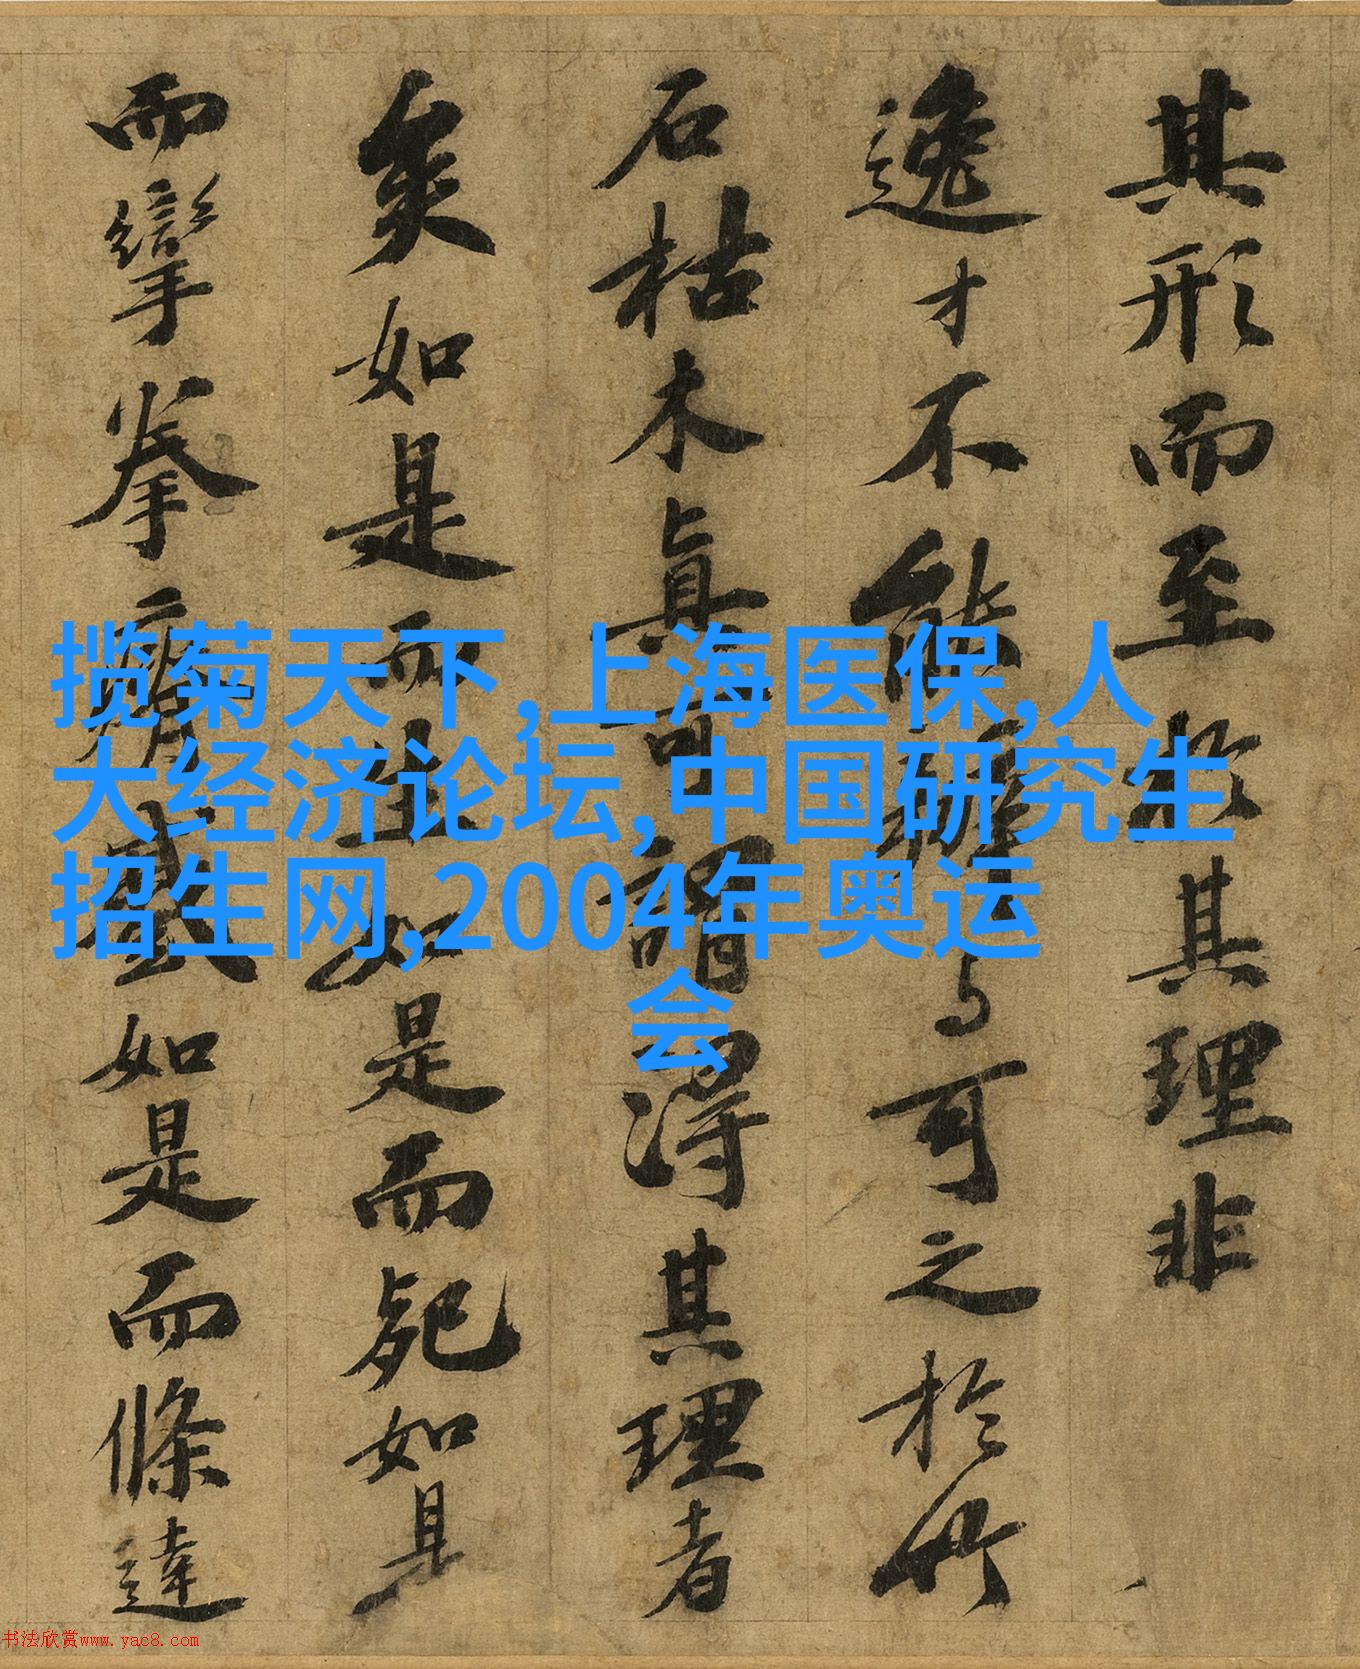 其形而至於其理非
逸才不能辨与可之於竹
石枯木眞可謂得其理者
矣如是而生如是而死如是
而攣拳瘠蹙如是而條達
揽菊天下,上海医保,人
大经济论坛,中国研究生
招生网,2004年奥运
会
书法欣赏www.yac8.com